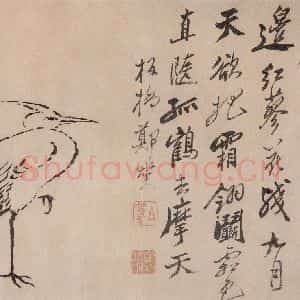 邊紅蓼花殘九月
天欲把霜翎鬭色
直隨孤鶴去摩天
板橋鄭燮
Shufawang.CN